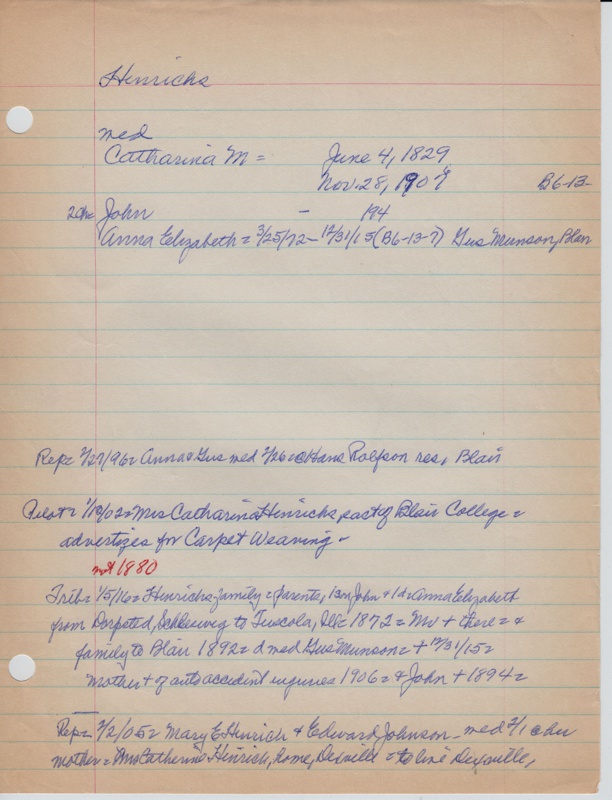 Hinrichs
med
Catharina M = June 4, 1829
Nov. 28, 1907 B6-13-
2ch= John - 194
Anna Elizabeth = 3/25/72 - 12/31/15 (B6-13-7) Gus Munson, Blair
Rep= 2/27/96= Anna & Gus med 2/26 = @ Hans Rolfson res, Blair
Pilot = 1/19/02= Mrs Catharina Hinrichs, east of Blair College =
advertizes for Carpet Weaving -
not 1880
Trib= 1/5/16= Hinrichs family = parents, 1son John & 1d= Anna Elizabeth
from Schleswig to Tuscola, Ills 1872 = Mr + there = &
family to Blair 1892= d med Gus Munson = + 12/31/15=
Mother + of auto accident injuries 1906 = & John + 1894=
Rep= 2/2/05= Mary E Hinrich & Edward Johnson - med 2/1 @ her
mother = Mrs Catherine Hinrich, home, = to live